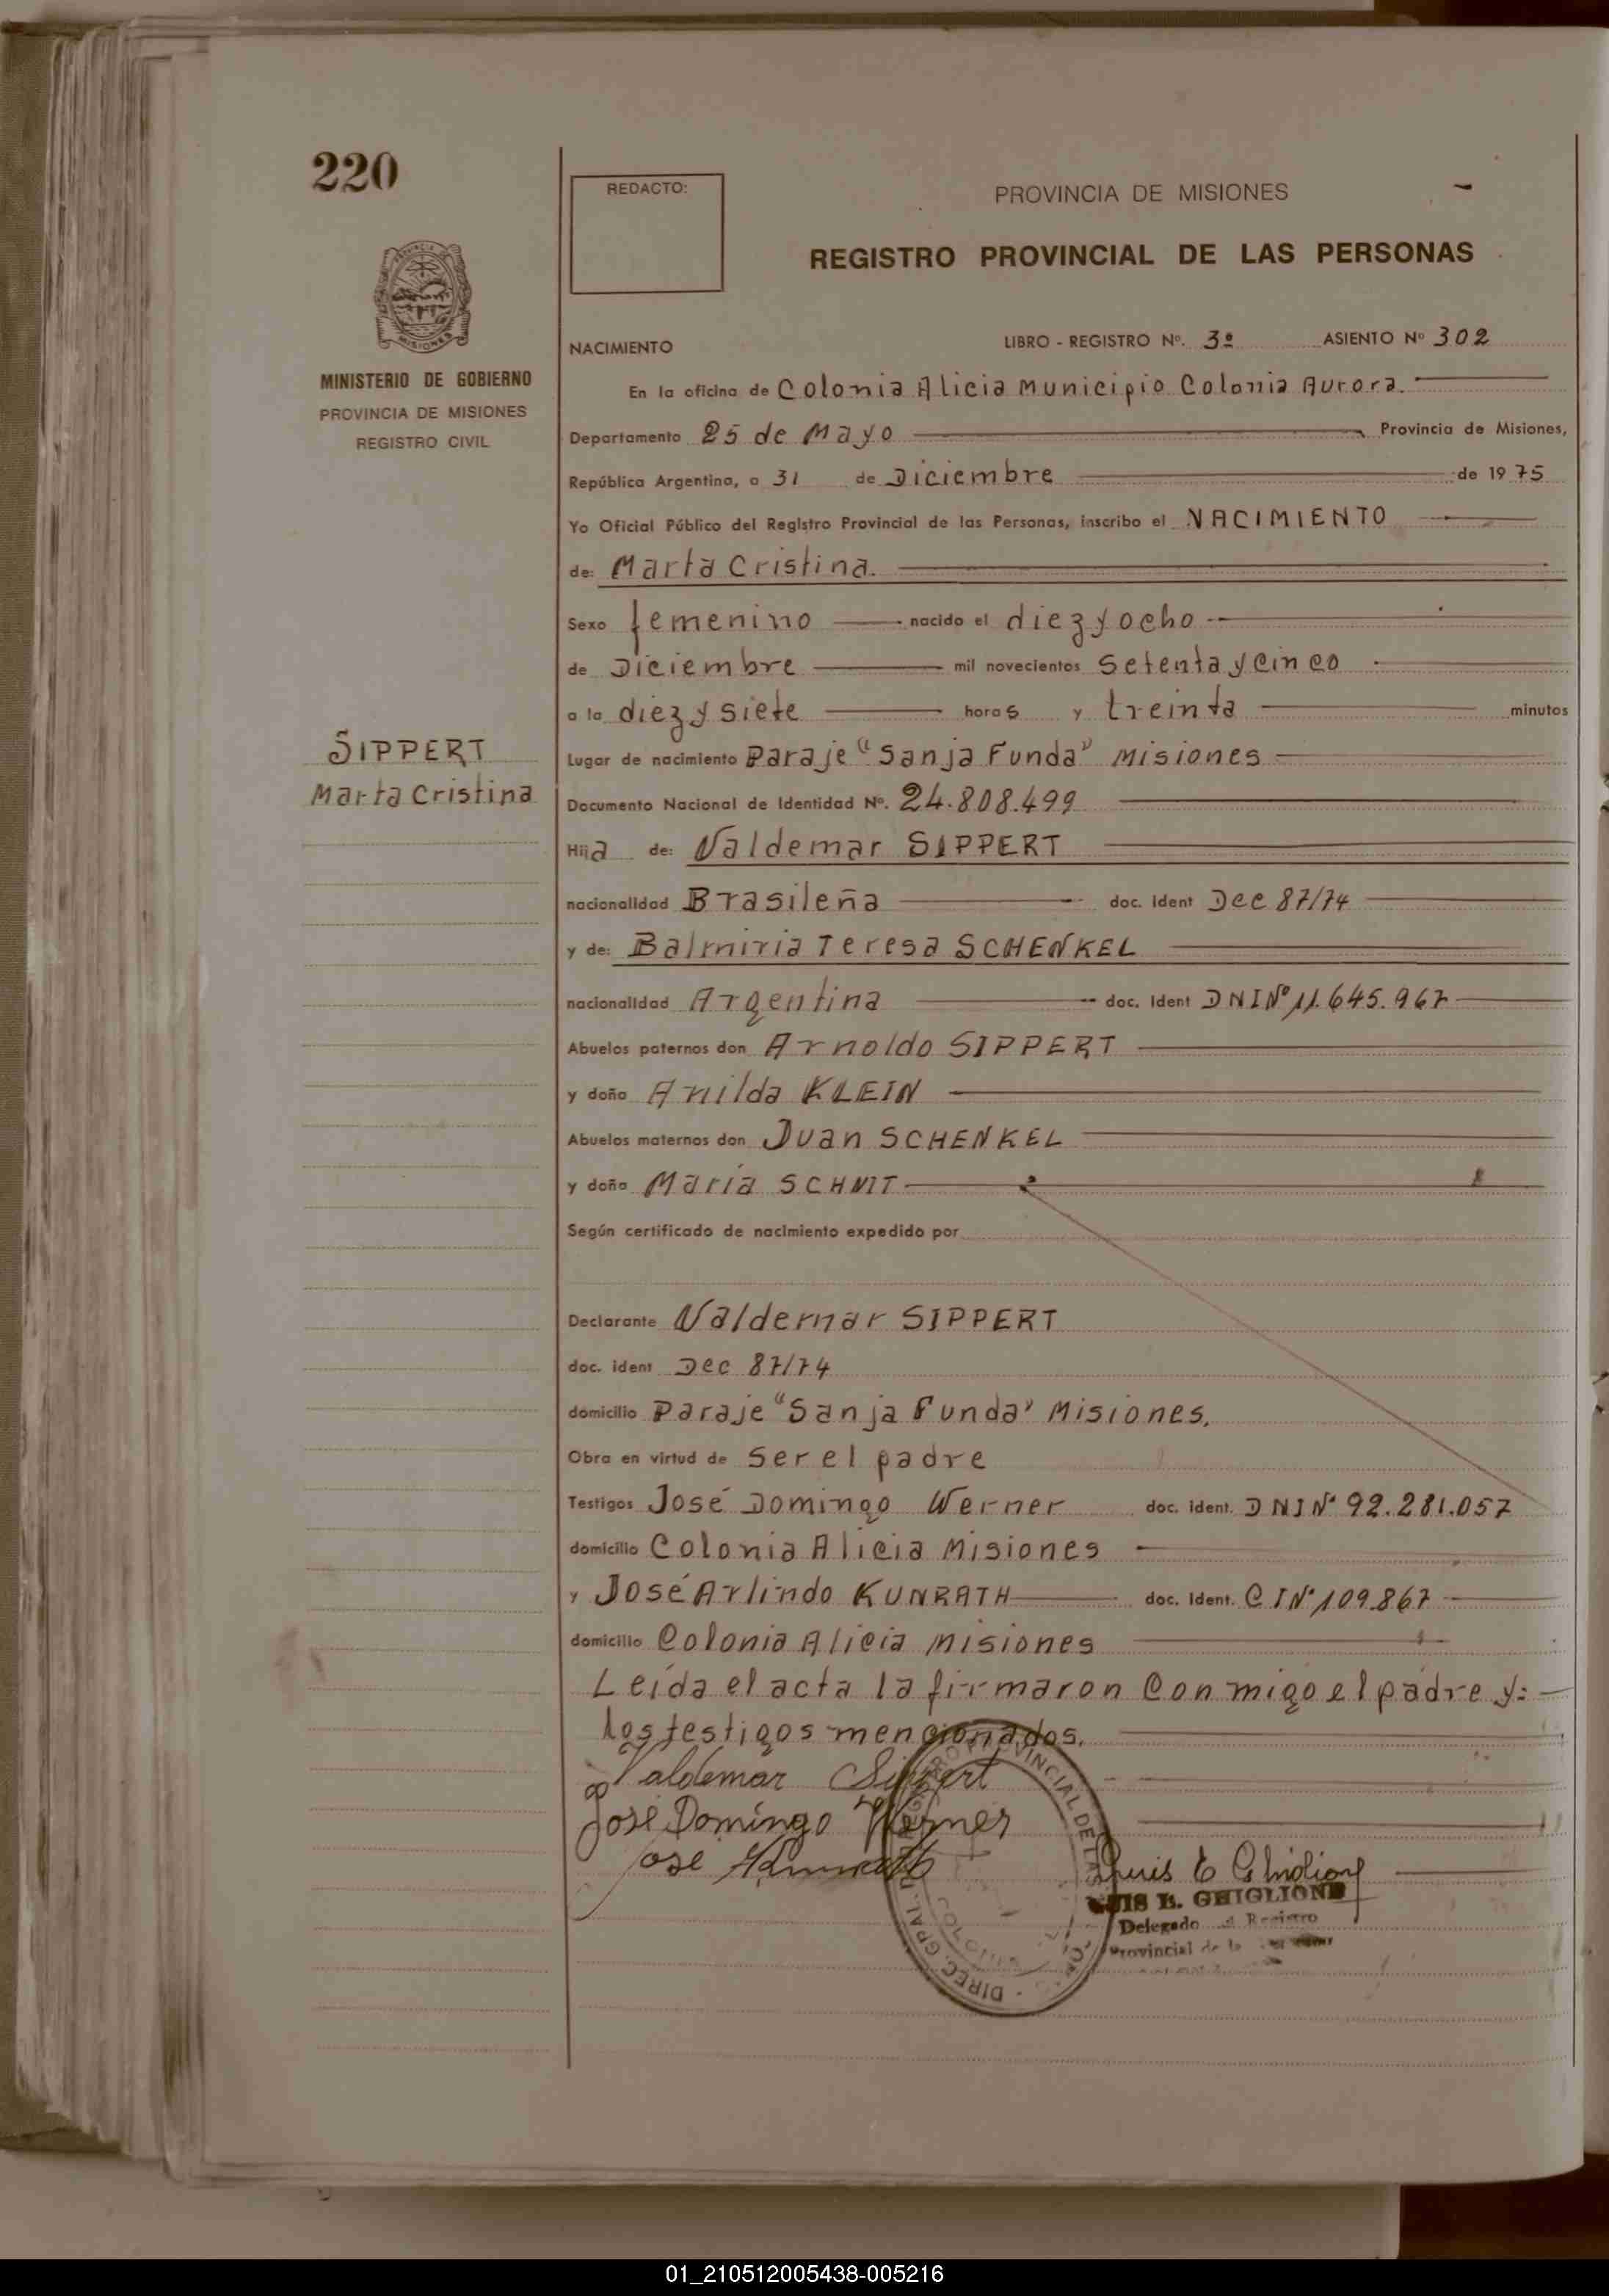 220
REDACTO:
PROVINCIA DE MISIONES
REGISTRO PROVINCIAL DE LAS PERSONAS
MINISTERIO DE GOBIERNO
PROVINCIA DE MISIONES
REGISTRO CIVIL
NACIMIENTO LIBRO - REGISTRO Nº. 3º ASIENTO Nº 302
En la oficina de Colonia Alicia Municipio Colonia Aurora.
Departamento 25 de Mayo Provincia de Misiones,
República Argentina, a 31 de Diciembre de 1975
Yo Oficial Público del Registro Provincial de las Personas, inscribo el NACIMIENTO
de: Marta Cristina.
Sexo femenino nacido el diez y ocho
de Diciembre mil novecientos setenta y cinco
a la diez y siete horas y treinta minutos
SIPPERT
Marta Cristina
Lugar de nacimiento Paraje "Sanja Funda" Misiones
Documento Nacional de Identidad Nº. 24.808.499
Hija de: Valdemar SIPPERT
nacionalidad Brasileña doc. Ident Dec 87/74
y de: Balmiria Teresa SCHENKEL
nacionalidad Argentina doc. Ident DNI Nº 11.645.967
Abuelos paternos don Arnoldo SIPPERT
y doña Anilda KLEIN
Abuelos maternos don Juan SCHENKEL
y doña María SCHMIT
Según certificado de nacimiento expedido por
Declarante Valdemar SIPPERT
doc. ident Dec 87/74
domicilio Paraje "Sanja Funda" Misiones.
Obra en virtud de ser el padre
Testigos José Domingo Werner doc. ident. DNI Nº 92.281.057
domicilio Colonia Alicia Misiones
y José Arlindo KUNRATH doc. Ident. C I Nº 109.867
domicilio Colonia Alicia Misiones
Leída el acta la firmaron conmigo el padre y:
los testigos mencionados.
Valdemar Sippert
José Domingo Werner
José Kunrath
Luis E Ghiglione
LUIS E. GHIGLIONE
Delegado Registro
Provincial de la
DIREC. GRAL. REGISTRO PROVINCIAL DE LA
01_210512005438-005216